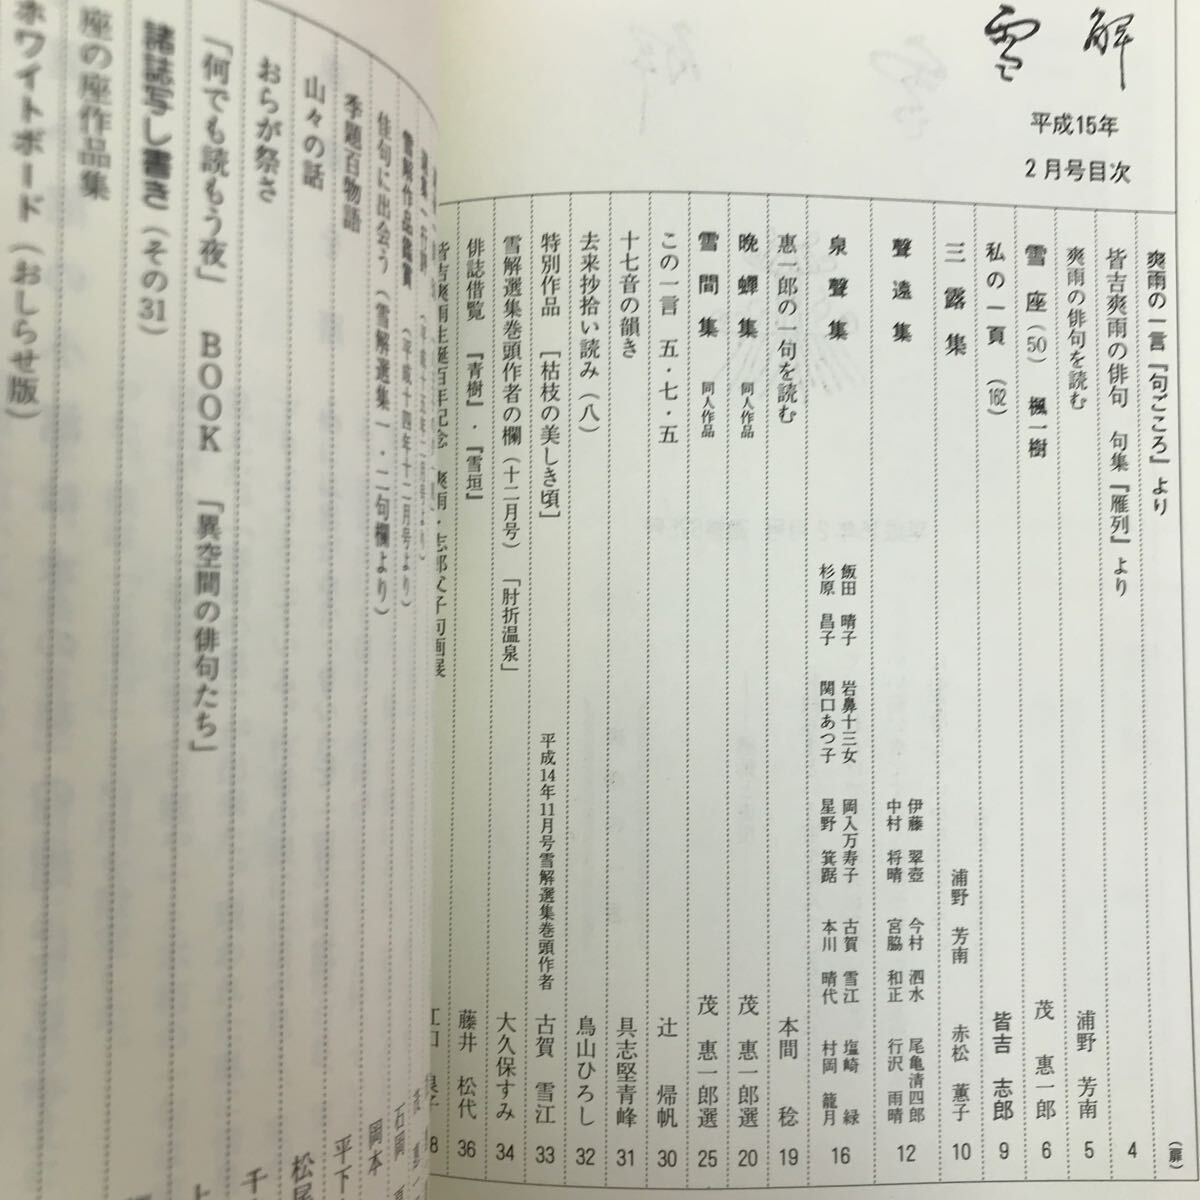 雪解
平成15年
2月号目次
爽雨の一言『句ごころ』より (扉)
皆吉爽雨の俳句 句集『雁列』より 4
爽雨の俳句を読む 浦野 芳南 5
雪座(50) 楓一樹 茂 惠一郎 6
私の一頁 (162) 皆吉 志郎 9
三露集 浦野 芳南 赤松 薫子 10
聲遠集 伊藤 翠壺 今村 泗水 尾亀清四郎 中村 将晴 宮脇 和正 行沢 雨晴 12
泉聲集 飯田 晴子 岩鼻十三女 岡入万寿子 古賀 雪江 塩崎 緑 杉原 昌子 関口あつ子 星野 箕踞 本川 晴代 村岡 籠月 16
惠一郎の一句を読む 本間 稔 19
晩蟬集 同人作品 茂 惠一郎選 20
雪間集 同人作品 茂 惠一郎選 25
この一言 五・七・五 辻 帰帆 30
十七音の韻き 具志堅青峰 31
去来抄拾い読み(八) 鳥山ひろし 32
特別作品 [枯枝の美しき頃] 平成14年11月号雪解選集巻頭作者 古賀 雪江 33
雪解選集巻頭作者の欄(十二月号)「肘折温泉」 大久保すみ 34
俳誌借覧 『青樹』・『雪垣』 藤井 松代 36
皆吉爽雨生誕百年記念 爽雨・志郎父子句画展
雪解作品鑑賞 (平成十四年十二月号より)
佳句に出会う(雪解選集一・二句欄より) 石岡
季題百物語 岡本
山々の話 平下
おらが祭さ 松尾
「何でも読もう夜」 BOOK 「異空間の俳句たち」 千
諸誌写し書き(その31)
座の座作品集
ホワイトボード(おしらせ版)